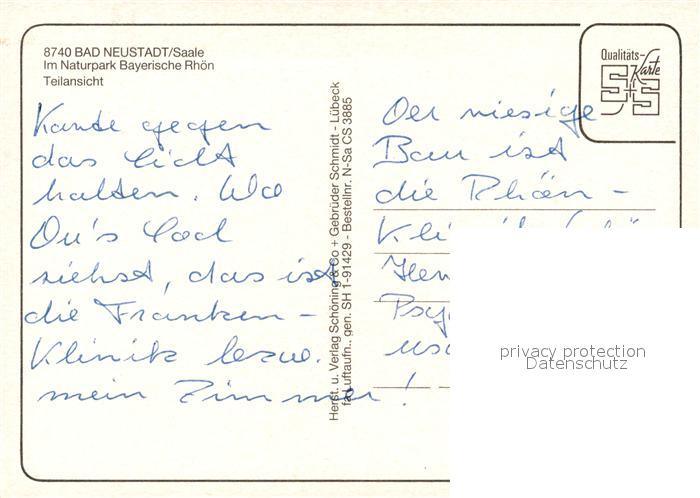 8740 BAD NEUSTADT/Saale
Im Naturpark Bayerische Rhön
Teilansicht
Qualitäts-
Karte
S+S
Karte gegen
das Licht
halten. Wo
Du's Loch
siehst, das ist
die Franken-
Klinik bezw.
mein Zimmer!
Herst. u. Verlag Schöning & Co + Gebrüder Schmidt - Lübeck
fa Luftaufn., gen. SH 1-91429 - Bestellnr. N-Sa CS 3885
Der riesige
Bau ist
die Rhön-
Kli
Her
Psy
usw
privacy protection
Datenschutz